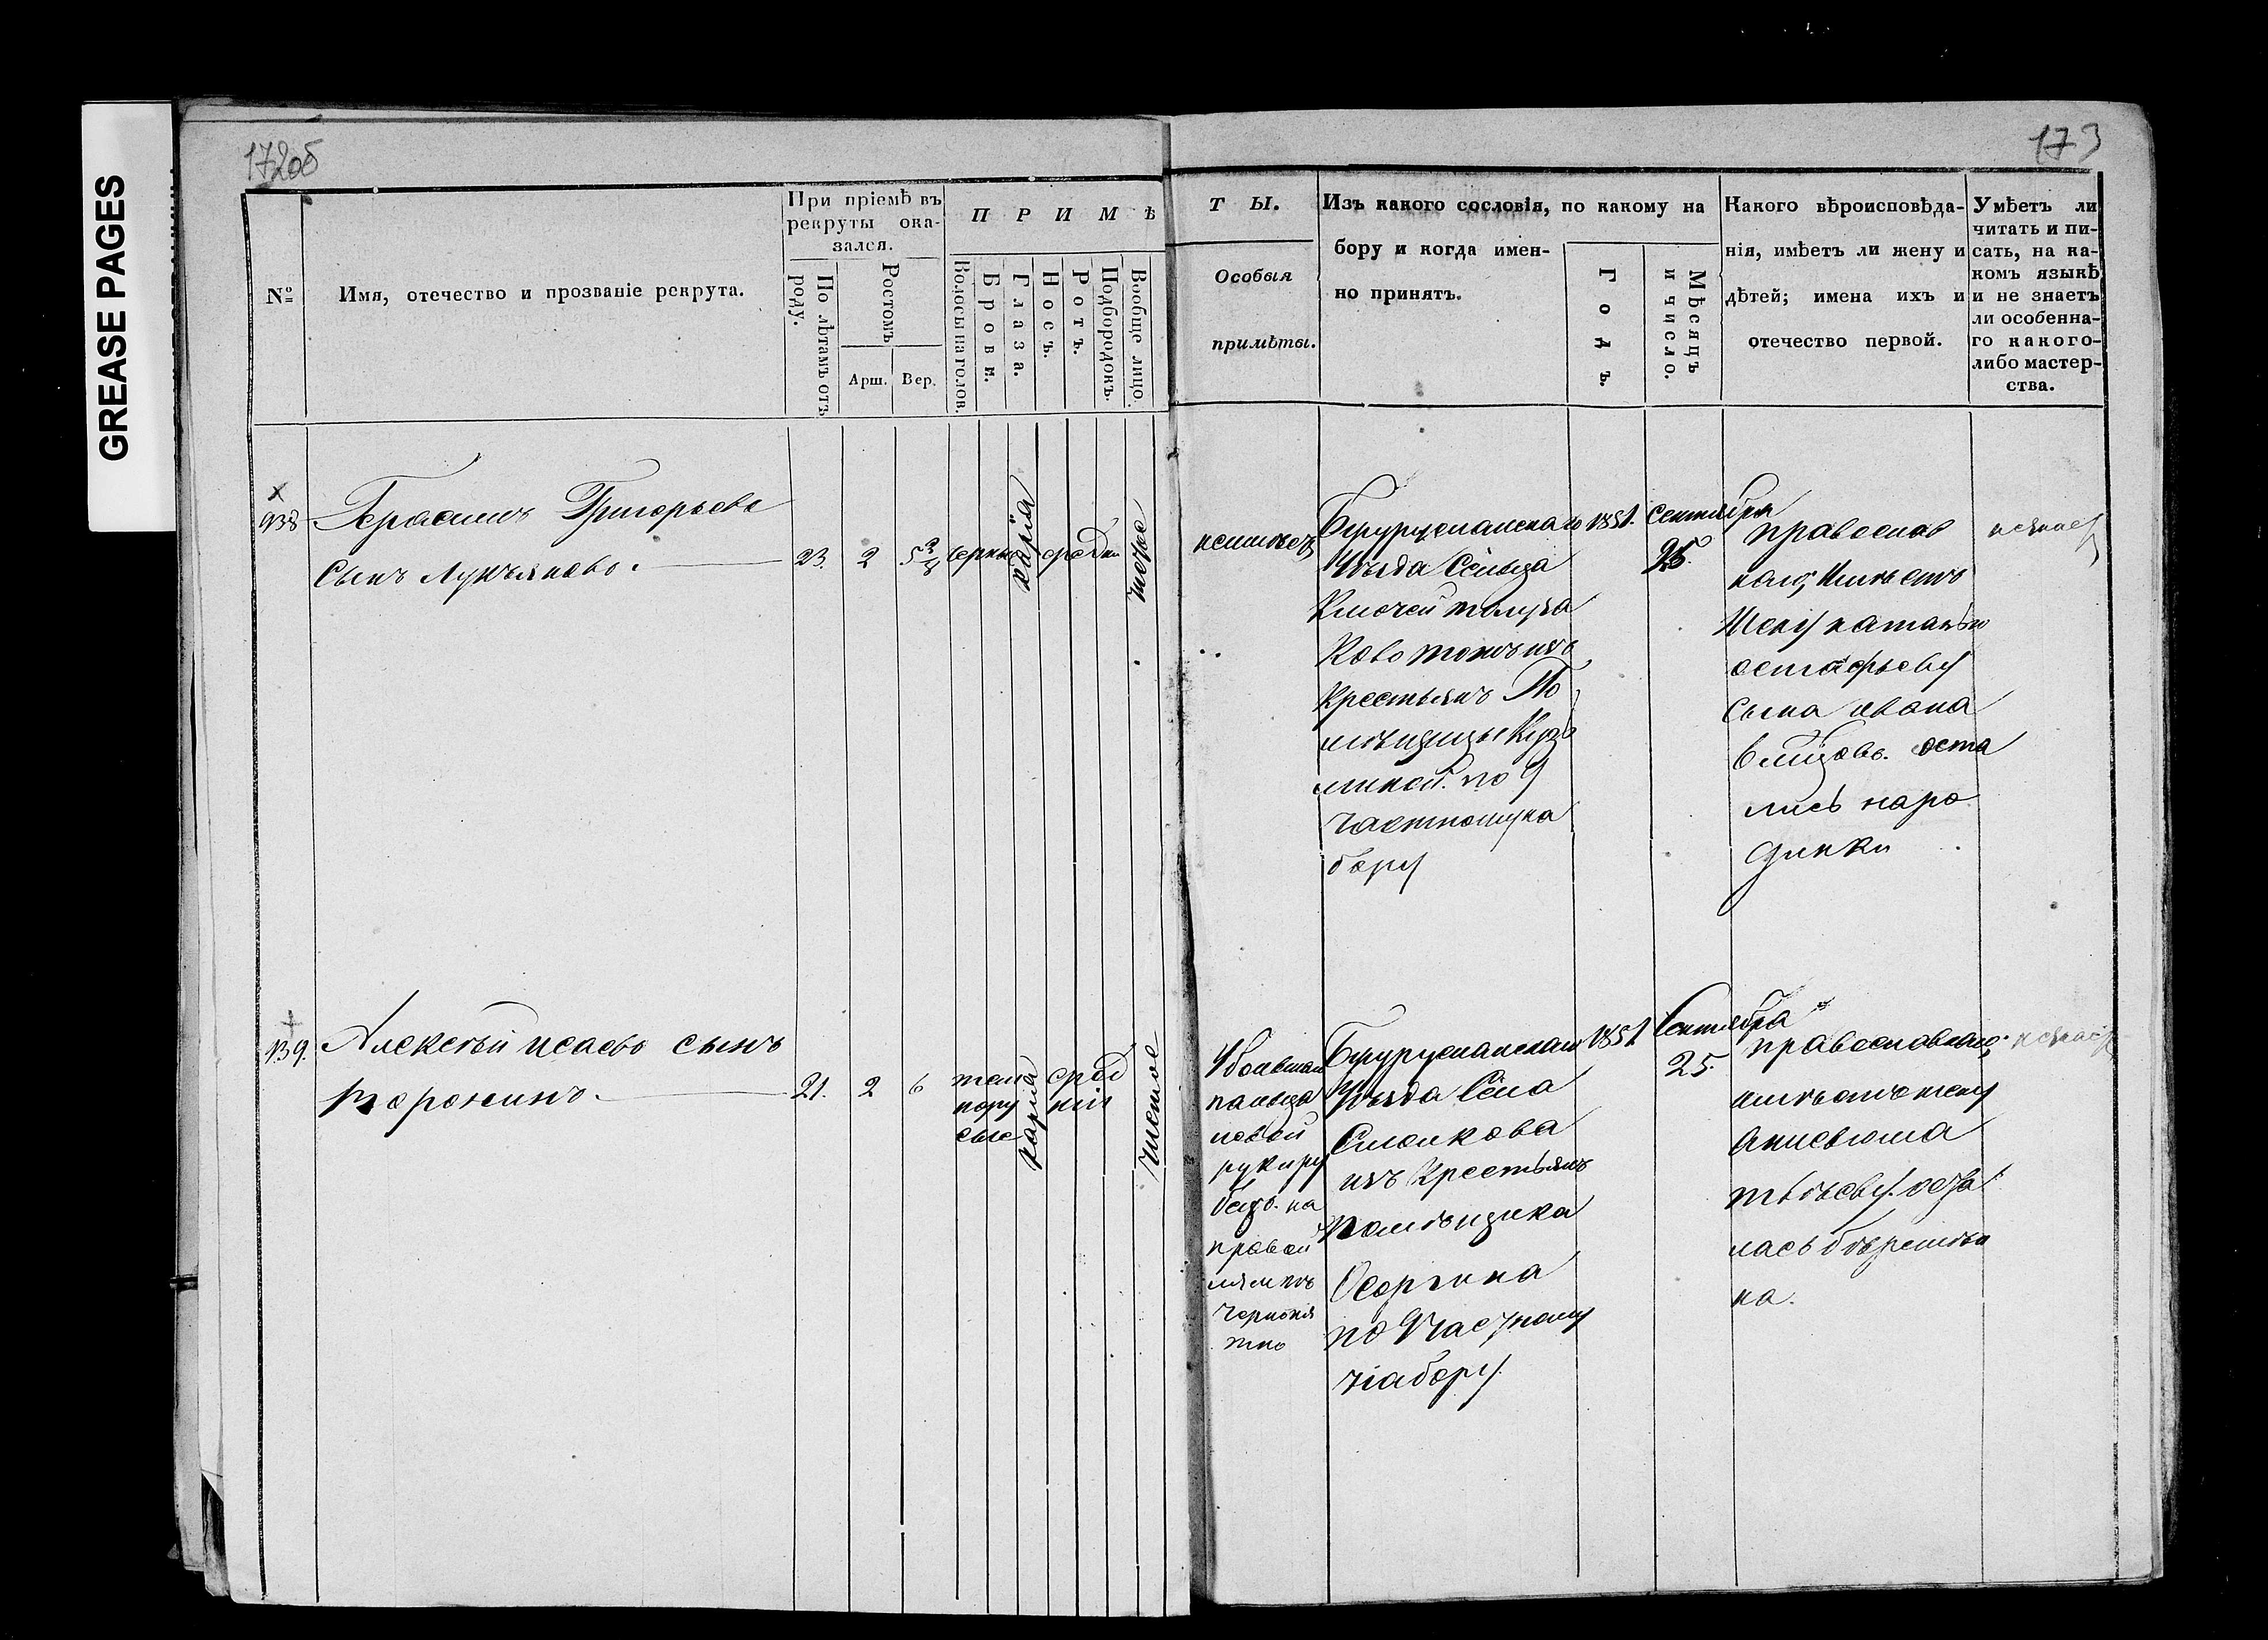 GREASE PAGES
172об
173
№
Имя, отечество и прозваніе рекрута.
При пріемѣ въ
рекруты ока-
зался.
По лѣтамъ отъ
роду.
Ростомъ
Арш.
Вер.
П Р И М Ѣ
Волосы на голов.
Брови.
Глаза.
Носъ.
Ротъ.
Подбородокъ.
Вообще лицо.
Т Ы.
Особыя
примѣты.
Изъ какого сословія, по какому на
бору и когда имен-
но принятъ.
Годъ.
Мѣсяцъ
и число.
Какого вѣроисповѣда-
нія, имѣетъ ли жену и
дѣтей; имена ихъ и
отечество первой.
Умѣетъ ли
читать и пи-
сать, на ка-
комъ языкѣ
и не знаетъ
ли особенна-
го какого-
либо мастер-
ства.
Герасимъ Григорьевъ
Сынъ Лукьяново.
23.
2
карія
средн
чистое
неимѣетъ
Бугурусланскаго
Уѣзда Сельца
Ключей
крестьянъ По
мѣщицы Кузь
миной. по 9
частному на
бору
1851.
Сентября
25.
православ
наго, имѣетъ
Жену наталью
остафьеву
Сына ивана
оста
лись на ро
динки
незнаетъ
139.
Алексѣй исаево сынъ
21.
2
6
темно
ру
сые
карія
сред
ніи
чистое
Убольшаго
пальца
левой
руки ру
бецъ. на
правой
лямкѣ
черное пя
тно
Бугурусланскаго
Уѣзда Села
Смолкова
изъ Крестьянъ
помѣщика
Осоргина
по 9 частному
набору.
1851
Сентября
25.
православнаго,
имѣетъ жену
анисью ма
твѣеву. оста
лась беремѣн
на.
незнаетъ